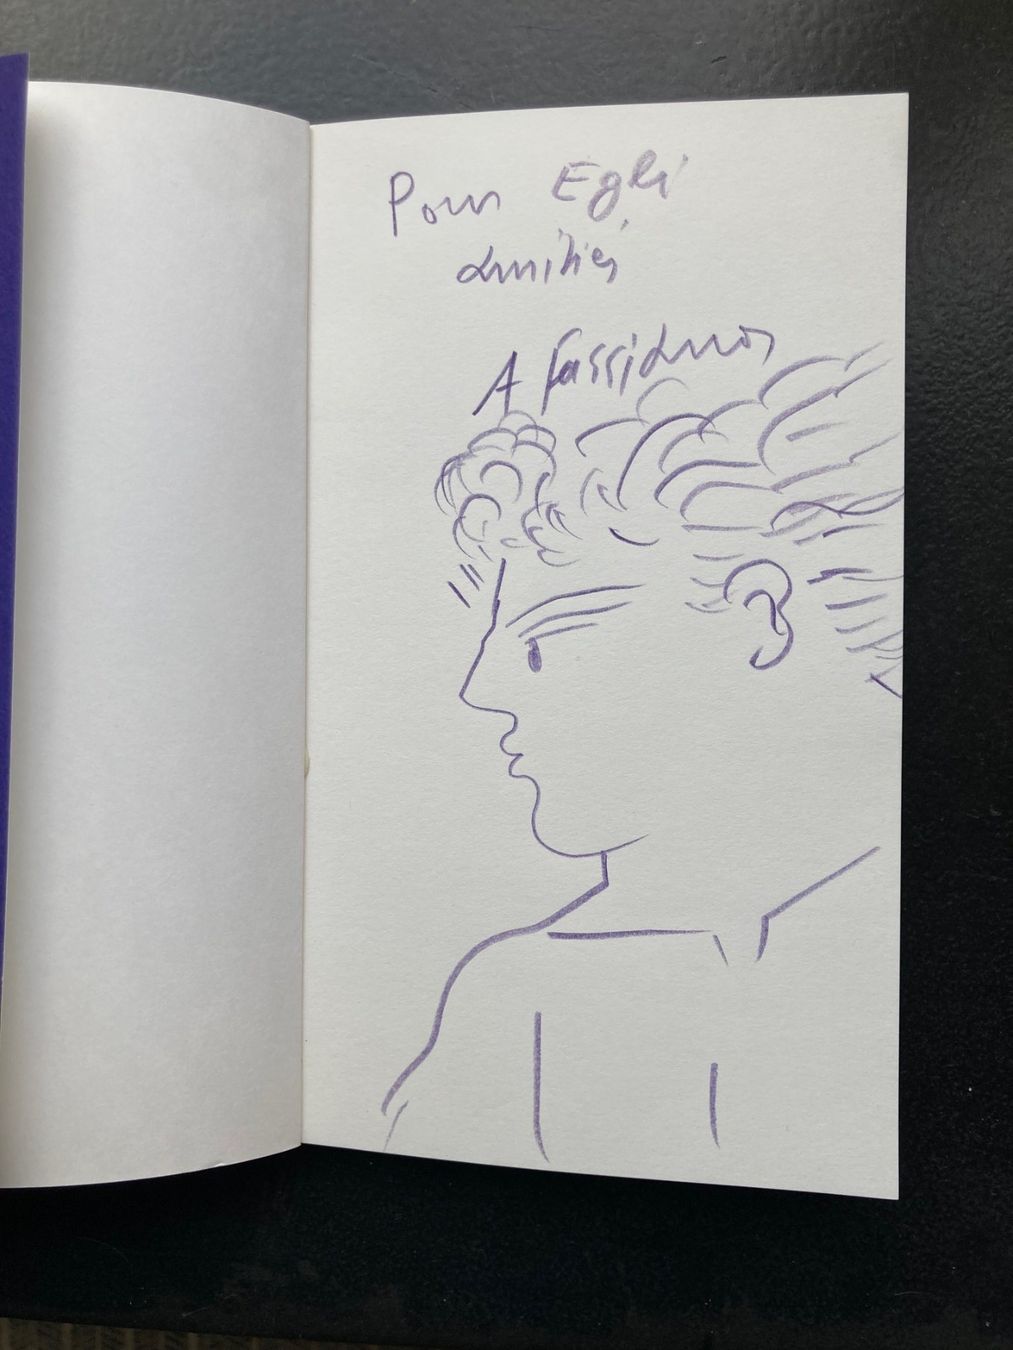 Pour Egli
amitiés
A Fassianos